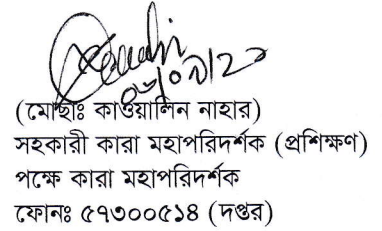 (মোছাঃ কাওয়ালিন নাহার)
সহকারী কারা মহাপরিদর্শক (প্রশিক্ষণ)
পক্ষে কারা মহাপরিদর্শক
ফোনঃ ৫৭৩০০৫১৪ (দপ্তর)